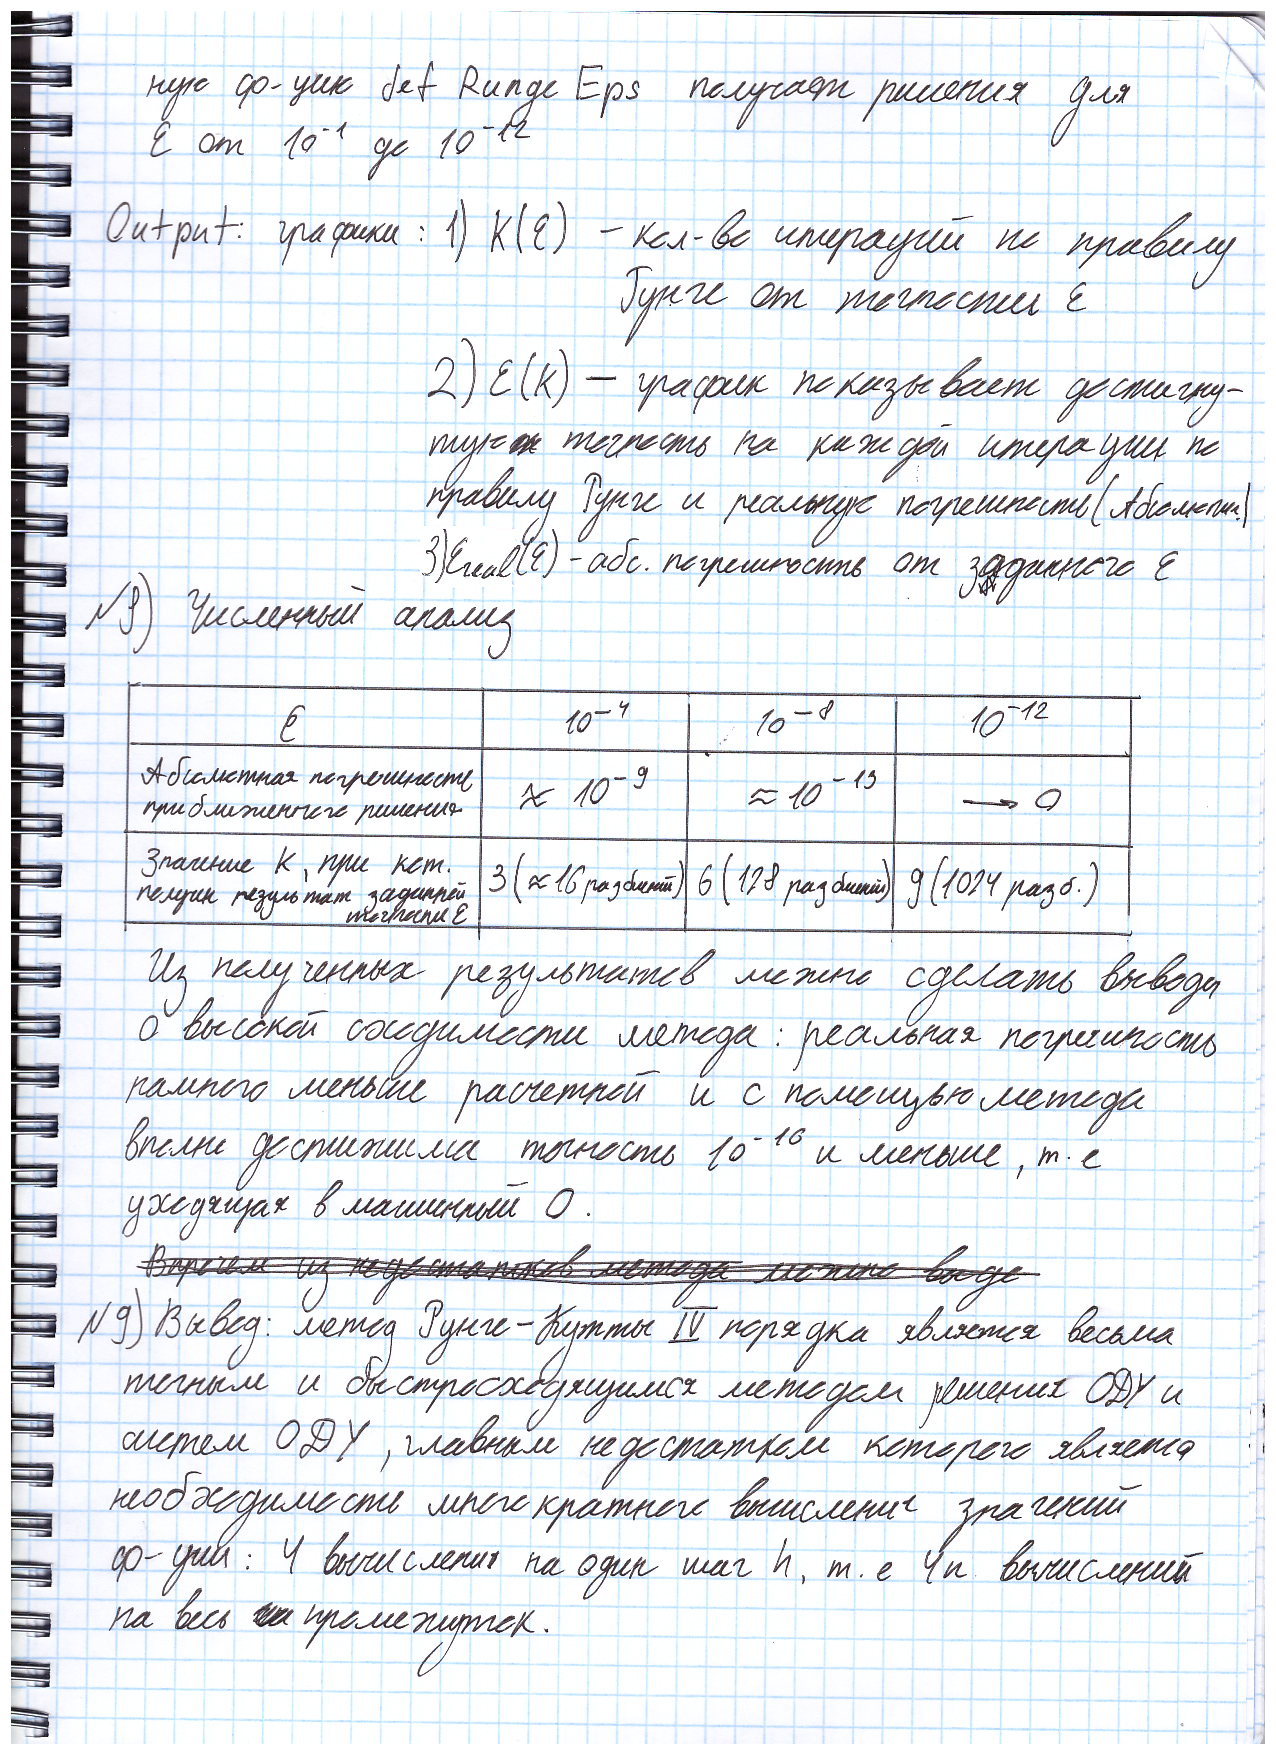 ную ф-цию def RungeEps получаем решения для
ε от 10⁻¹ до 10⁻¹²
Output: графики: 1) K(ε) – кол-во итераций по правилу
Рунге от точности ε
2) ε(K) — график показывает достигну-
тую точность на каждой итерации по
правилу Рунге и реальную погрешность (Абсолютн.)
3) εreal(ε) – абс. погрешность от заданного ε
№8) Численный анализ
ε 10⁻⁴ 10⁻⁸ 10⁻¹²
Абсолютная погрешность
приближенного решения ≈ 10⁻⁹ ≈ 10⁻¹³ → 0
Значение K, при кот.
получен результат заданной
точности ε 3 (≈16 разбиений) 6 (128 разбиений) 9 (1024 разб.)
Из полученных результатов можно сделать выводы
о высокой сходимости метода: реальная погрешность
намного меньше расчетной и с помощью метода
вполне достижима точность 10⁻¹⁶ и меньше, т.е
уходящая в машинный 0.
Впрочем из недостатков метода можно выде
№9) Вывод: метод Рунге-Кутты IV порядка является весьма
точным и быстросходящимся методом решения ОДУ и
систем ОДУ, главным недостатком которого является
необходимость многократного вычисления значений
ф-ции: 4 вычисления на один шаг h, т.е 4n вычислений
на весь промежуток.